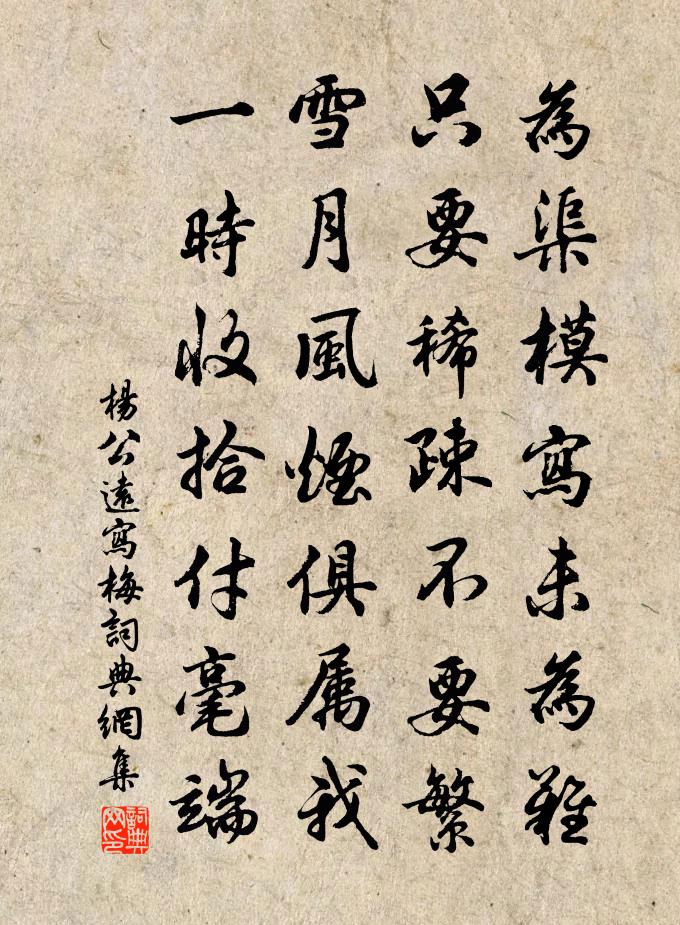 為渠模寫未為難
只要稀疎不要繁
雪月風煙俱属我
一時收拾付毫端
楊公遠寫梅詞典網集
詞典网印